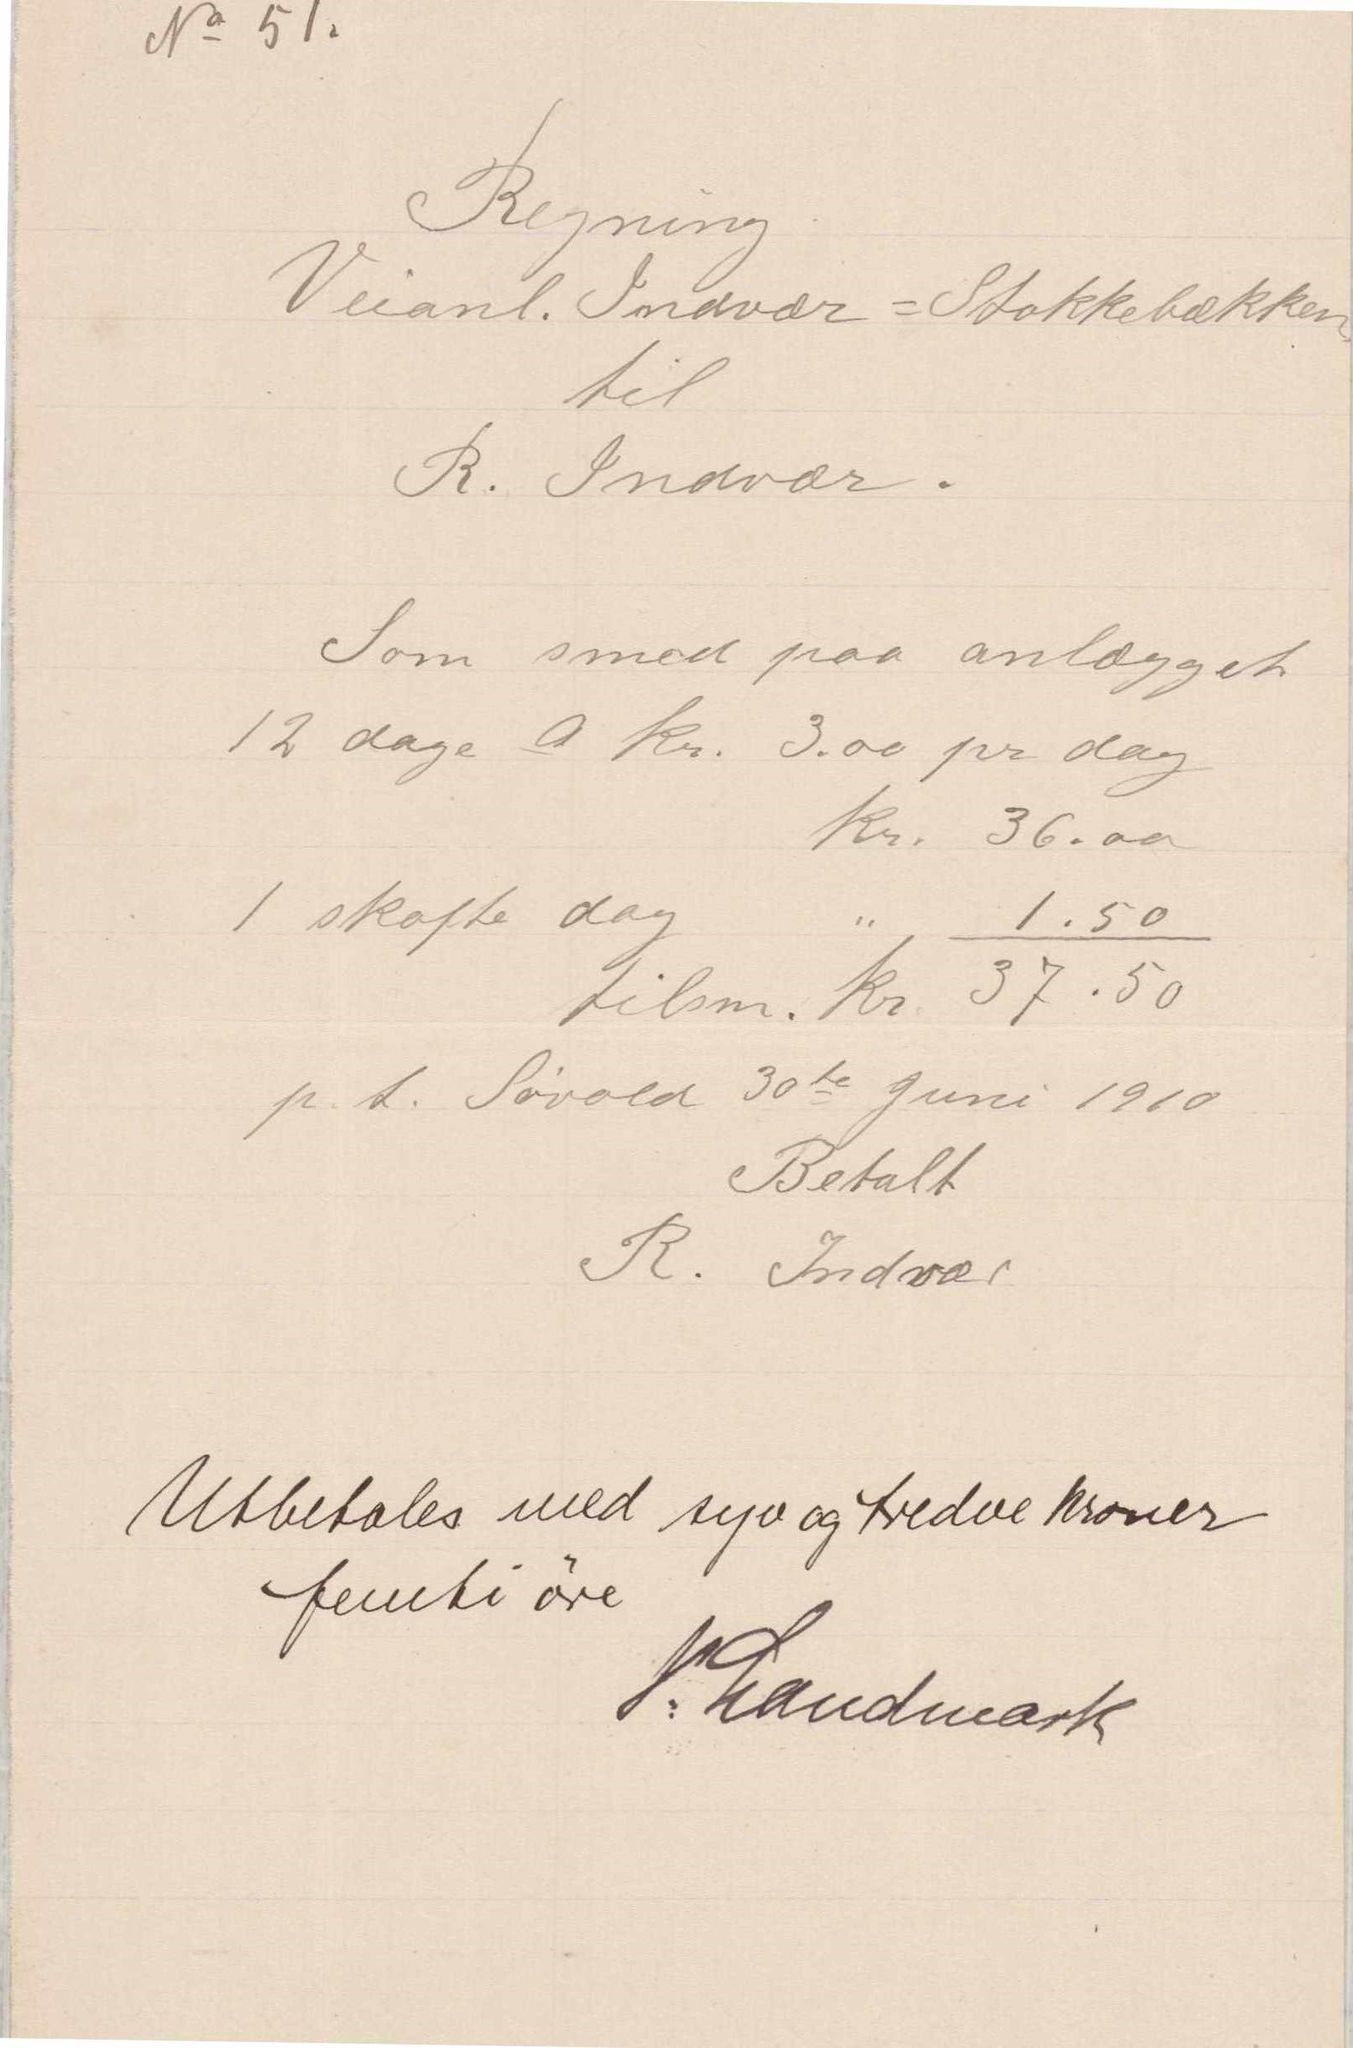 No 51.
Regning
Veianl. Indvær = Stokkebækken
til
R. Indvær.
Som smed paa anlægget
12 dage a kr. 3.00 pr dag
kr. 36.00
1 skafte dag " 1.50
tilsm. kr. 37.50
p. t. Søvold 30te Juni 1910
Betalt
R. Indvær
Utbetales med syv og tredve kroner
femti öre
Landmark